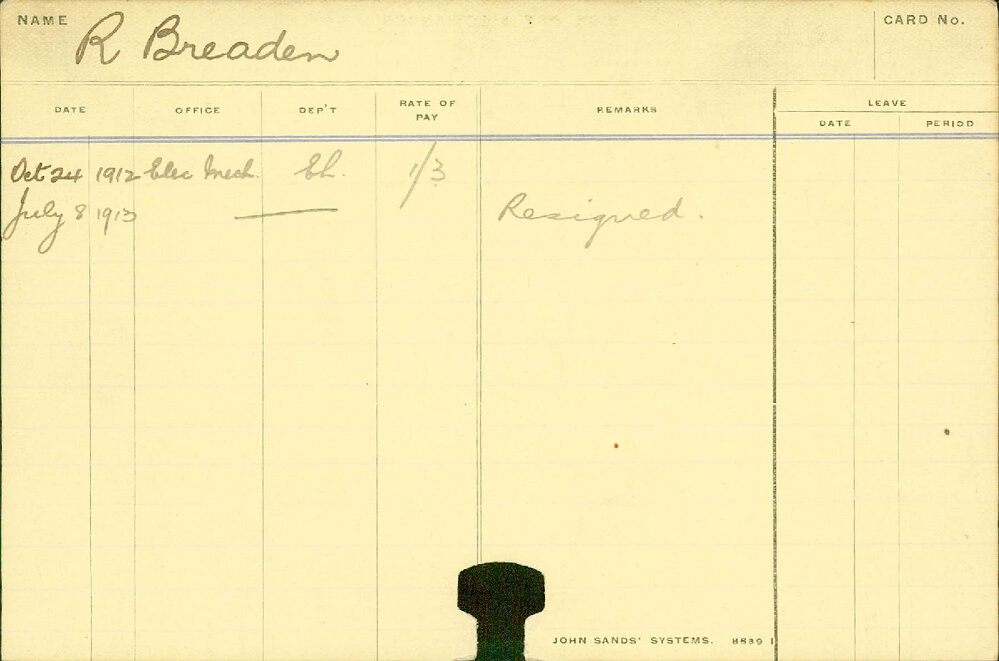 NAME R Breaden CARD No.
DATE OFFICE DEP'T RATE OF PAY REMARKS LEAVE
DATE PERIOD
Oct 24 1912 Elec Mech. Eh. 1/3
July 8 1913 Resigned.
JOHN SANDS' SYSTEMS. 8689